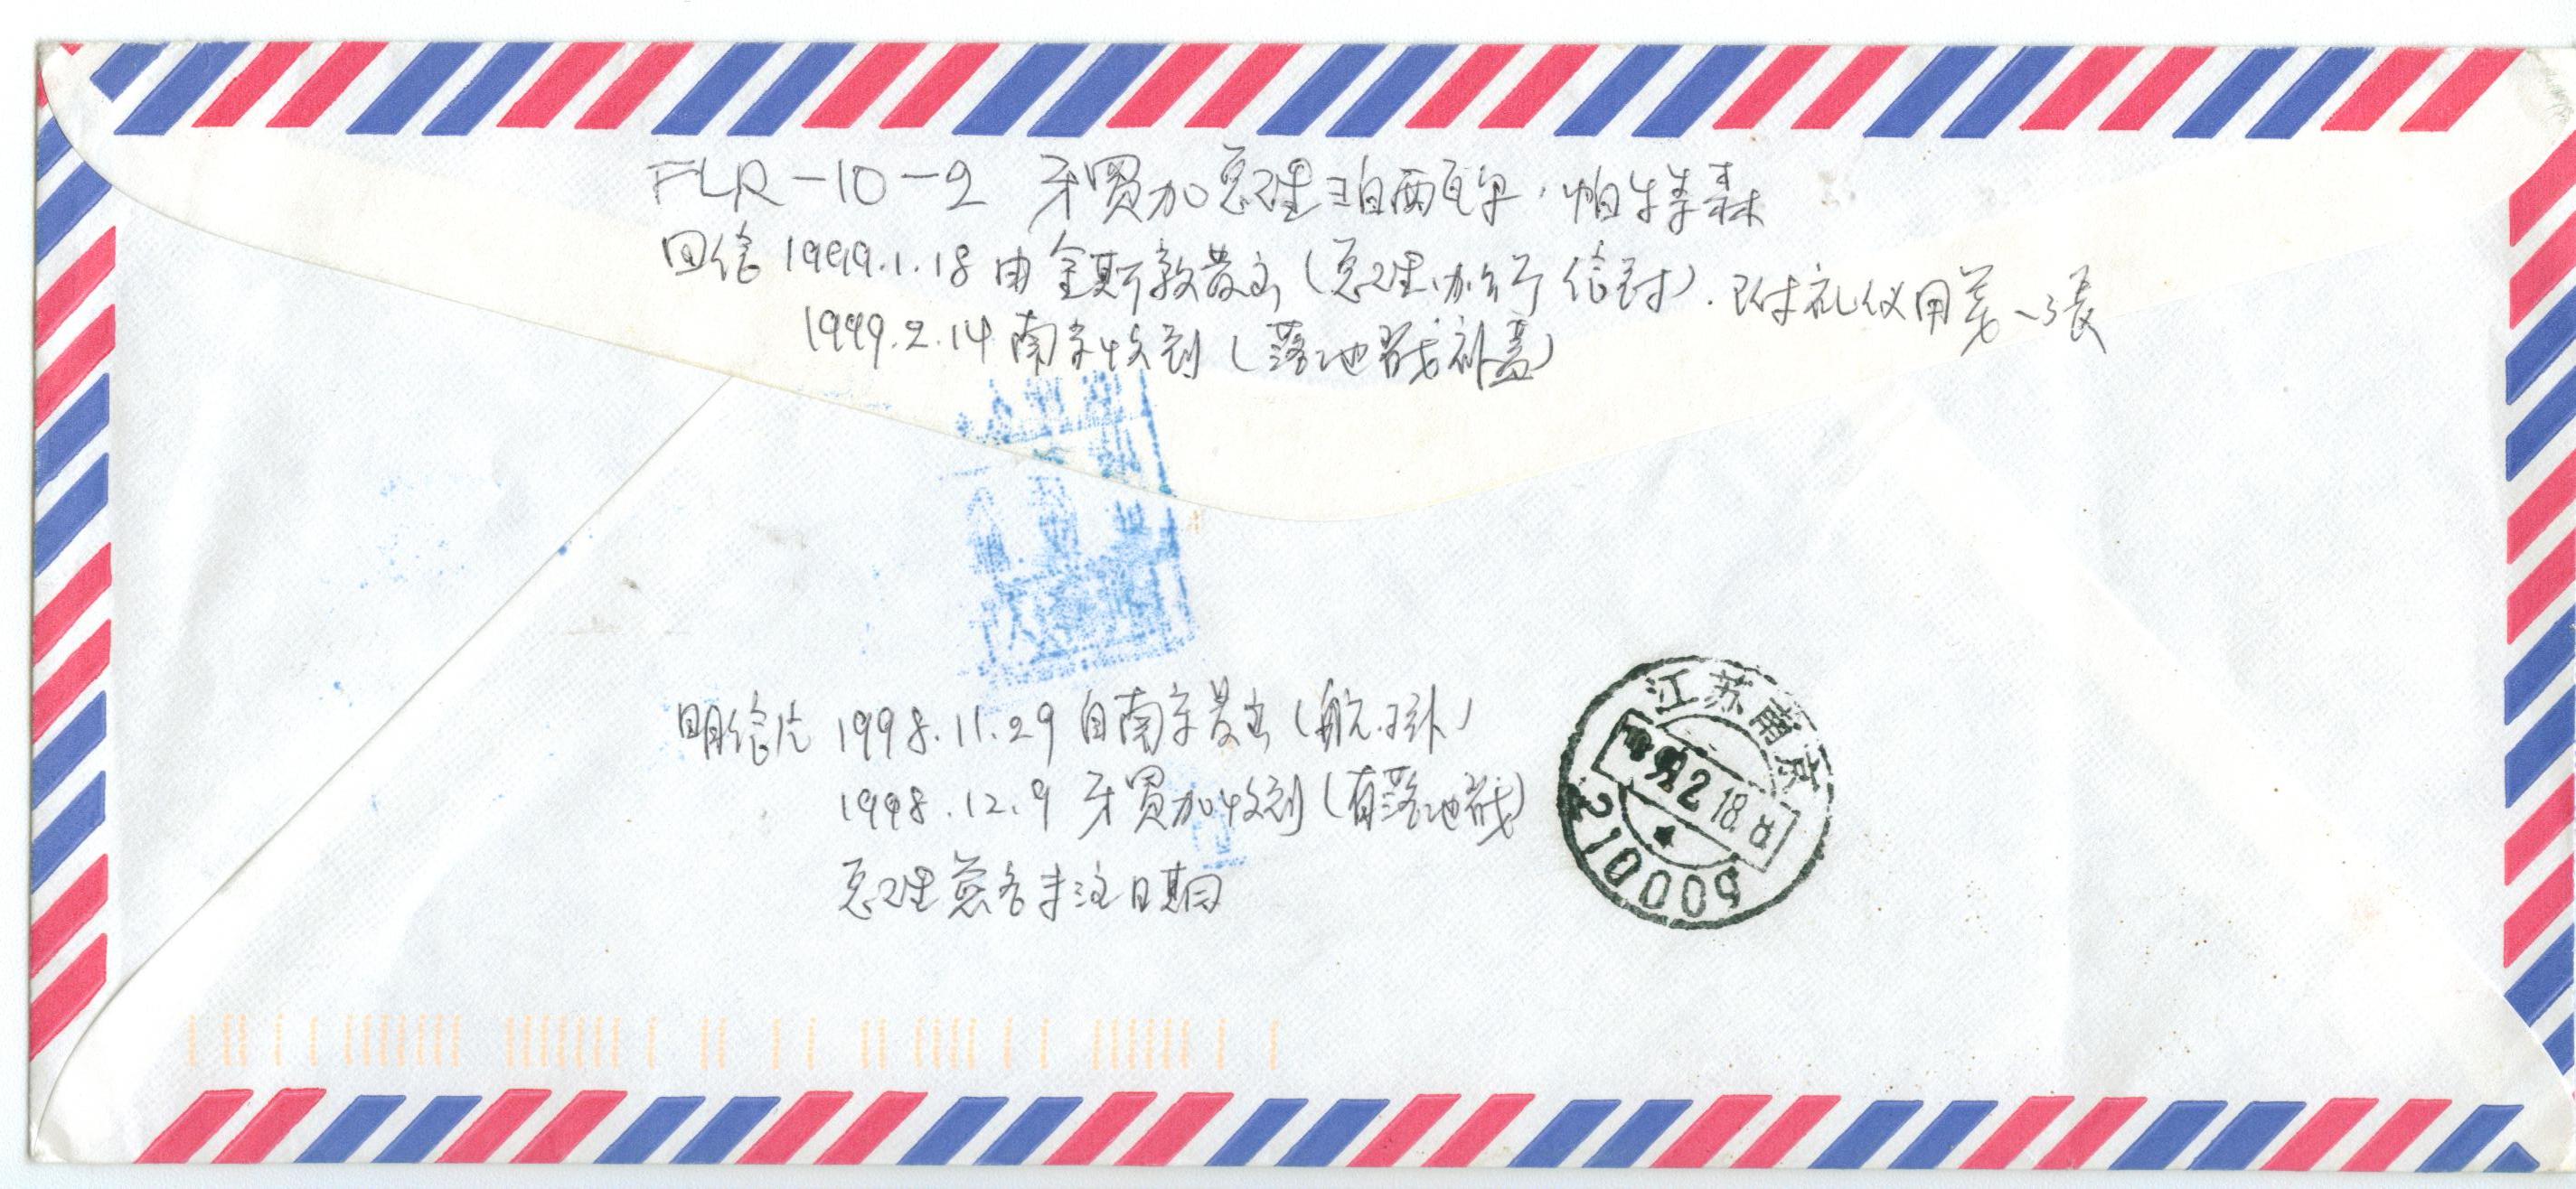 FLR-10-2 牙買加总理珀西瓦尔·帕特森
回信 1999.1.18 由金斯敦发出(总理办公厅信封).附礼仪用笺一张
1999.2.14 南京收到(落地戳补盖)
明信片 1998.11.29 自南京发出(航挂)
1998.12.9 牙買加收到(有落地戳)
总理签名未注日期
江苏南京
2 18
210009